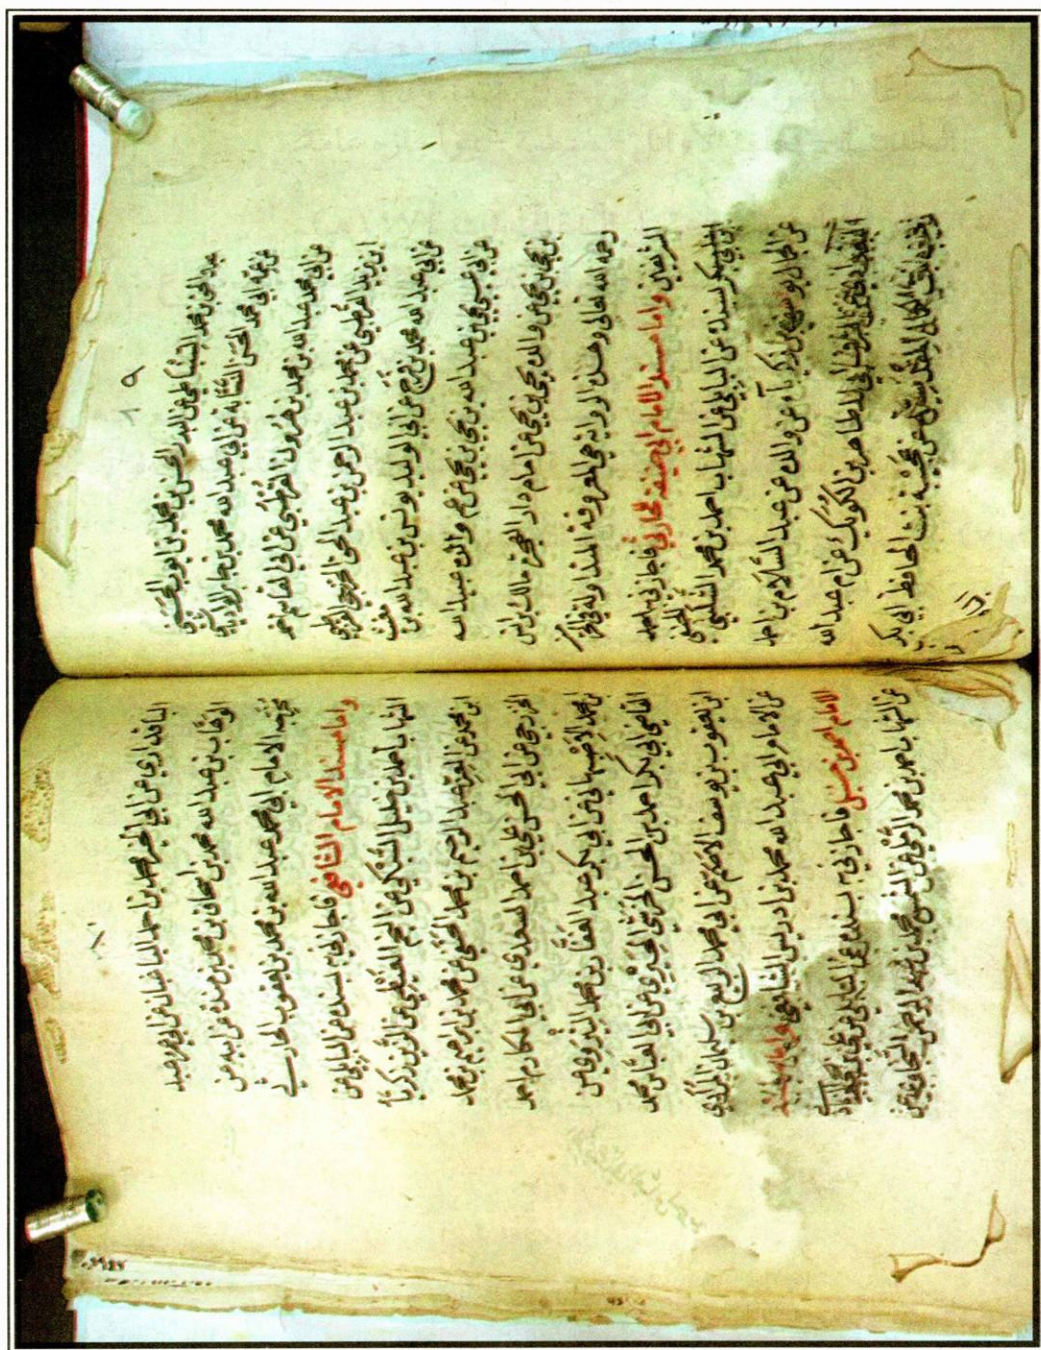 ٩
عبد الحق بن محمد السنباطي عن البدر الحسن بن محمد بن ايوب الحسني
عن عمه ابي محمد الحسن النسّابة عن ابي عبد الله محمد بن جابر الوادياشي
عن ابي محمد عبد الله بن محمد بن هرون القرطبي عن ابي القاسم احمد
ابن يزيد القرطبي عن محمد بن عبد الرحمن بن عبد الحق الخزرجي القرطبي
عن ابي عبد الله محمد بن فرج عن ابي الوليد يونس بن عبد الله بن مغيث
عن ابي عيسى يحيى بن عبد الله بن يحيى بن يحيى عن عم والده عبيد الله
بن يحيى بن يحيى عن والده يحيى بن يحيى عن امام دار الهجرة مالك بن انس
رحمه الله تعالى وهذه الرواية هي المعروفة المتداولة في
الشريفين واما مسند الامام ابي حنيفة للحارثي فاجازني به احمد
بسنده عن البابلي عن الشهاب احمد بن محمد الشلبي الحنفي
عن الجمال يوسف بن زكرياء عن والده عن عبد السلام بن احمد
البغدادي عن الشرف ابي الطاهر بن الكويك عن ام عبد الله
زينب بنت الكمال المقدسي عن عجيبة بنت الحافظ ابي بكر
١٠
الباقداري عن ابي الخير محمد بن احمد الباغبان عن ابي عمرو عبد
الوهاب بن عبد الله محمد بن اسحاق بن محمد بن منده عن ابيه عن
مخرجه الامام ابي محمد عبد الله بن محمد بن يعقوب الحارثي
واما مسند الامام الشافعي فاجازني به بسنده عن البابلي عن
الشهاب احمد بن خليل السبكي عن النجم الغيطي عن الزين زكريا
ابن محمد عن العز عبد الرحيم بن محمد الحنفي عن محمد بن ابراهيم بن محمد
الخزرجي عن ابي الحسن علي بن احمد السعدي عن ابي المكارم احمد
بن محمد الاصبهاني عن ابي بكر عبد الغفار بن محمد الشيروي عن
القاضي ابي بكر احمد بن الحسن الحرشي الحيري عن ابي العباس محمد
ابن يعقوب بن يوسف الاصم عن ابي محمد الربيع بن سليمان المرادي
عن الامام ابي عبد الله محمد بن ادريس الشافعي واما مسند
الامام احمد بن حنبل فاجازني به بسنده عن البابلي عن علي بن
عن الشهاب احمد بن محمد الرملي عن الشمس محمد بن عبد الرحمن السخاوي عن